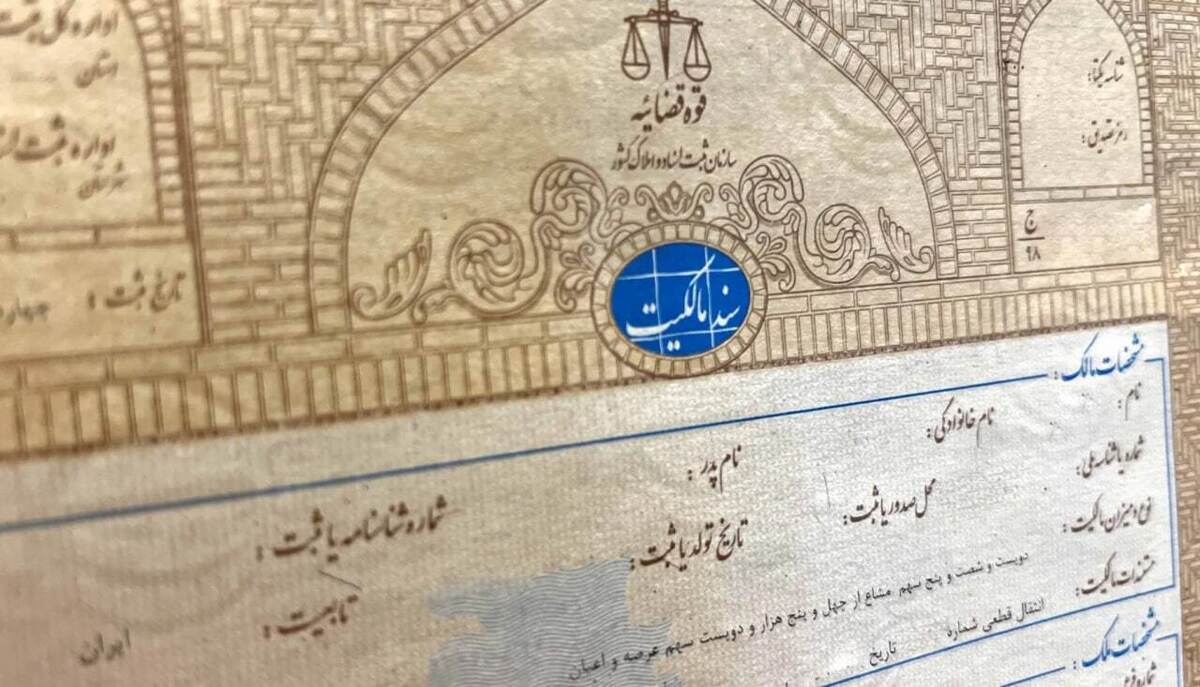 قوه قضائیه
سازمان ثبت اسناد و املاک کشور
شناسه یکتا:
رمز تصدیق:
ج
۹۸
اداره کل ثبت
استان
اداره ثبت
شهرستان
تاریخ ثبت :
سند مالکیت
مشخصات مالک :
نام : نام خانوادگی : نام پدر : شماره شناسنامه یا ثبت :
شماره یا شناسه ملی : محل صدور یا ثبت : تاریخ تولد یا ثبت : تابعیت : ایران
نوع و میزان مالکیت : دویست و شصت و پنج سهم مشاع از چهل و پنج هزار و دویست سهم عرصه و اعیان
مستندات مالکیت : انتقال قطعی شماره تاریخ
مشخصات ملک :